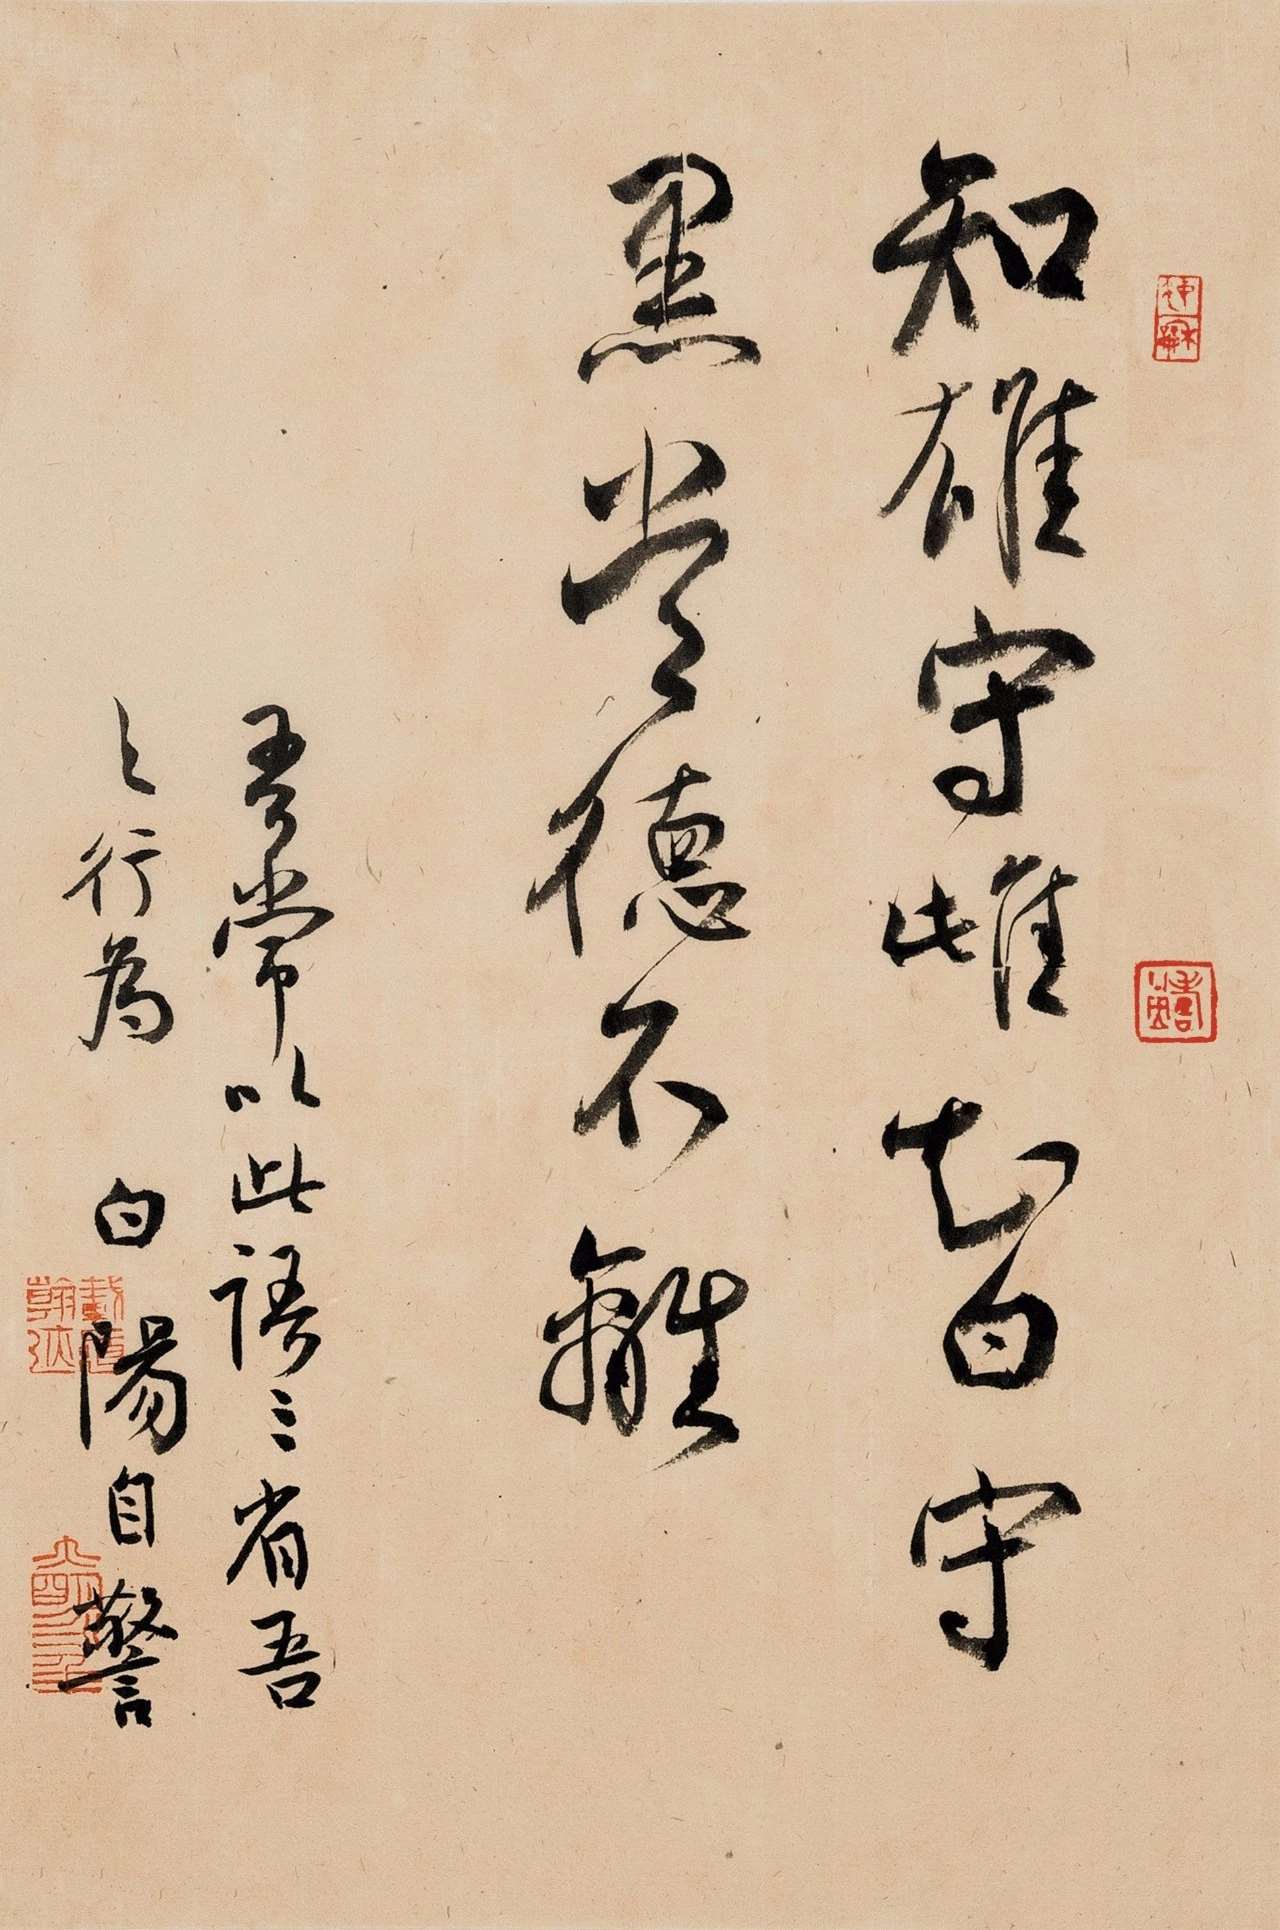 知雄守雌知白守
黑常德不離
吾常以此語三省吾
之行為 白陽自警